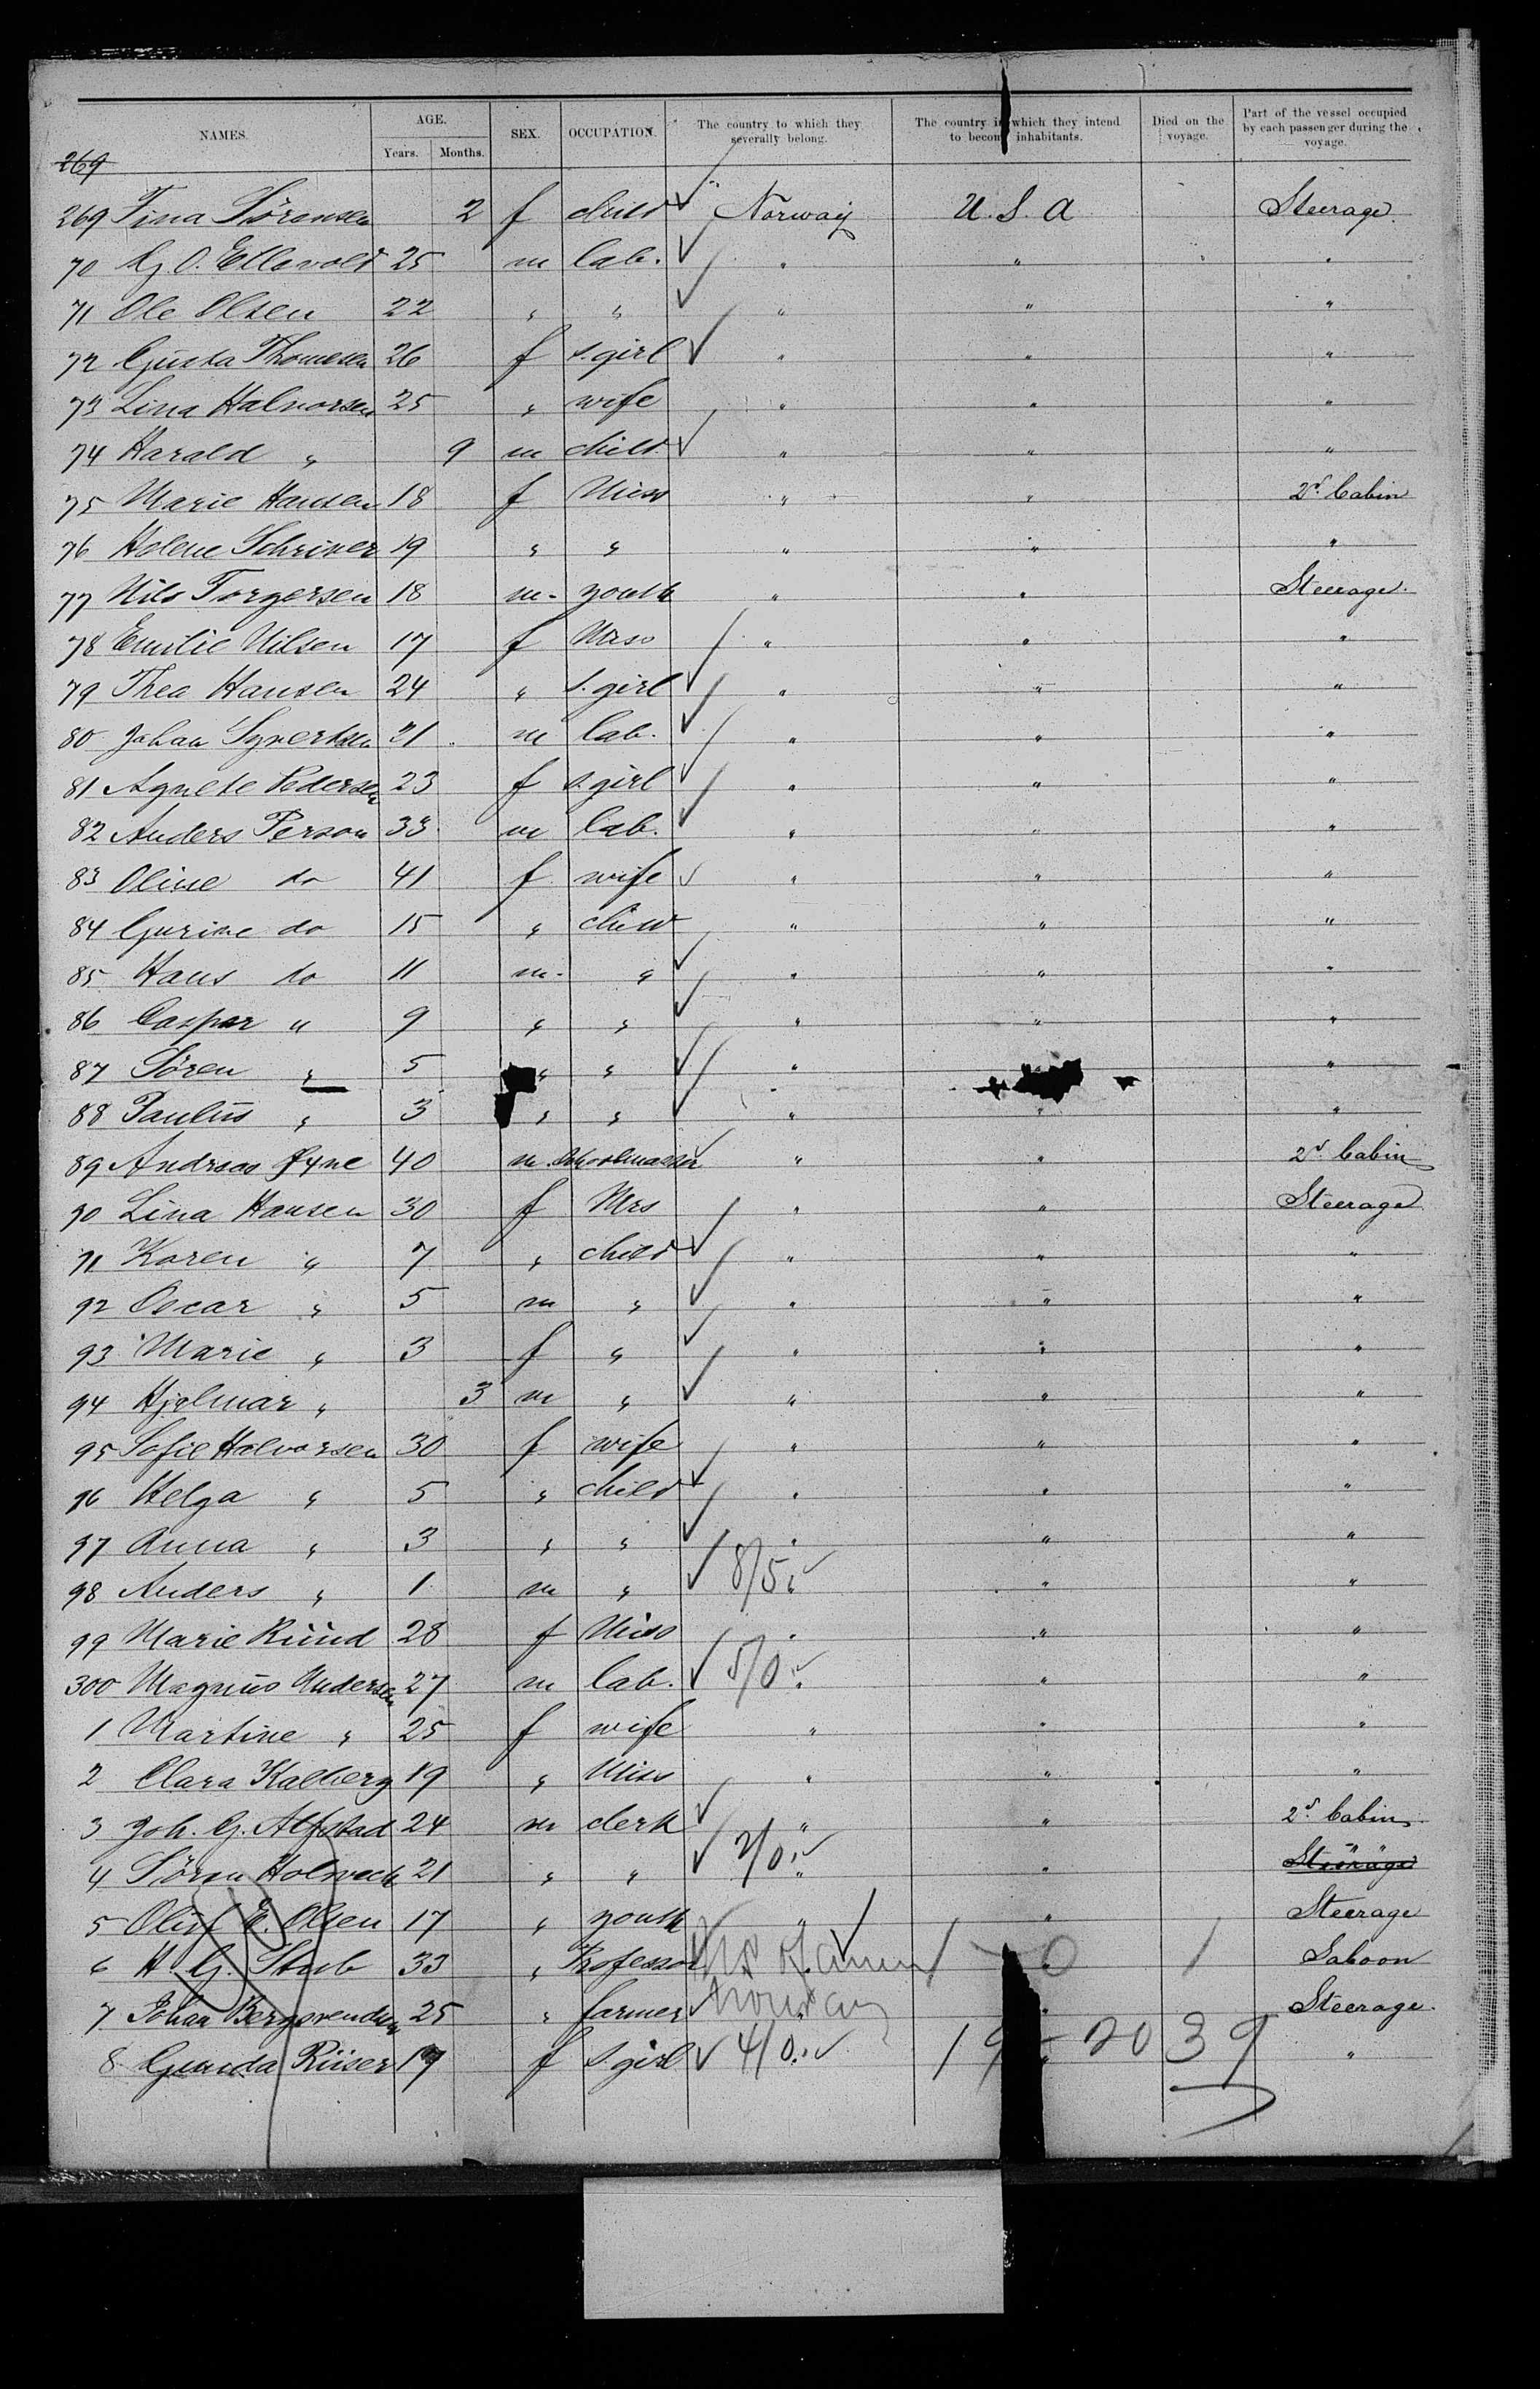 NAMES. AGE. Years. Months. SEX. OCCUPATION. The country to which they severally belong. The country in which they intend to become inhabitants. Died on the voyage. Part of the vessel occupied by each passenger during the voyage.
269
269 Tina Sörensen 2 f child ✓ " Norway U.S.A Steerage.
70 G. O. Ellevold 25 m lab. ✓ " " "
71 Ole Olsen 22 " " ✓ " " "
72 Gusta Thomesen 26 f s.girl ✓ " " "
73 Lina Halvorsen 25 " wife " " "
74 Harald " 9 m child ✓ " " "
75 Marie Hansen 18 f Miss " " 2d Cabin
76 Helene Schriver 19 " " " " "
77 Nils Torgersen 18 m. youth " " Steerage.
78 Emilie Nilsen 17 f Miss " " "
79 Thea Hansen 24 " s.girl ✓ " " "
80 Johan Syvertsen 21 m lab. ✓ " " "
81 Agnete Pedersen 23 f s.girl ✓ " " "
82 Anders Person 33 m lab. ✓ " " "
83 Oline do 41 f wife ✓ " " "
84 Gurine do 15 " child " " "
85 Hans do 11 m. " ✓ " " "
86 Caspar " 9 " " ✓ " " "
87 Sören " 5 " " ✓ " "
88 Paulus " 3 " " ✓ " " "
89 Andreas Fyne 40 m. Schoolmaster " " 2d Cabin
90 Lina Hansen 30 f Mrs " " Steerage
91 Karen " 7 " child ✓ " " "
92 Oscar " 5 m " ✓ " " "
93 Marie " 3 f " ✓ " " "
94 Hjalmar " 3 m " ✓ " " "
95 Sofie Halvorsen 30 f wife " " "
96 Helga " 5 " child ✓ " " "
97 Anna " 3 " " ✓ " " "
98 Anders " 1 m " ✓ 8/5 " ✓ " "
99 Marie Ruud 28 f Miss " " "
300 Magnus Andersen 27 m lab. ✓ 5/0 " ✓ " "
1 Martine " 25 f wife " " "
2 Clara Kalberg 19 " Miss " " "
3 Joh. G. Alfstad 24 m clerk ✓ " " 2d Cabin
4 Sören 21 " " ✓ 2/0 " ✓ " " " Steerage
5 Oluf E. Olsen 17 " youth " ✓ " Steerage
6 H. G. Stub 33 " Professor 1 0 1 Saloon
7 Johan Bergsvendsen 25 " farmer Norway " " Steerage.
8 Gunda Riiser 17 f s.girl ✓ 4/0 " ✓ 19 20 39 "